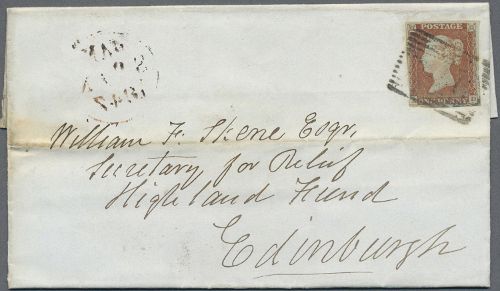 MAR
POSTAGE
ONE PENNY
William F. Skene Esqr,
Secretary for Relief
Highland Fund
Edinburgh